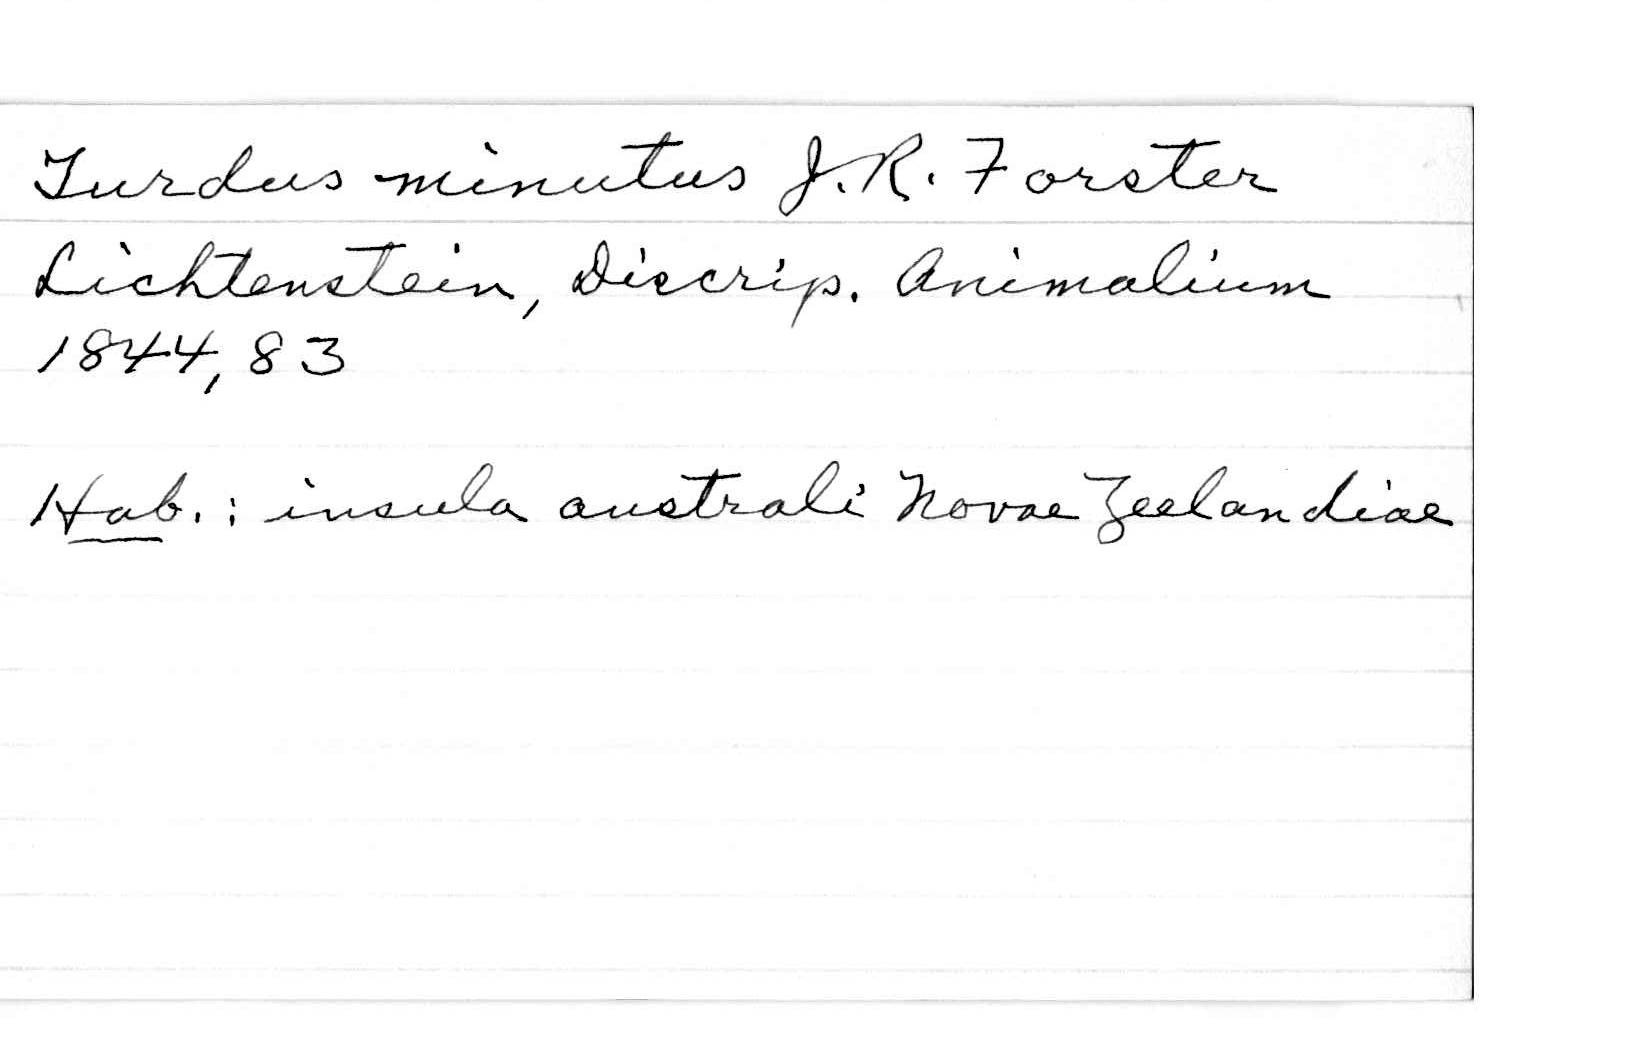 Turdus minutus J. R. Forster
Lichtenstein, Discrip. Animalium
1844, 83
Hab.: insula australi Novae Zeelandiae